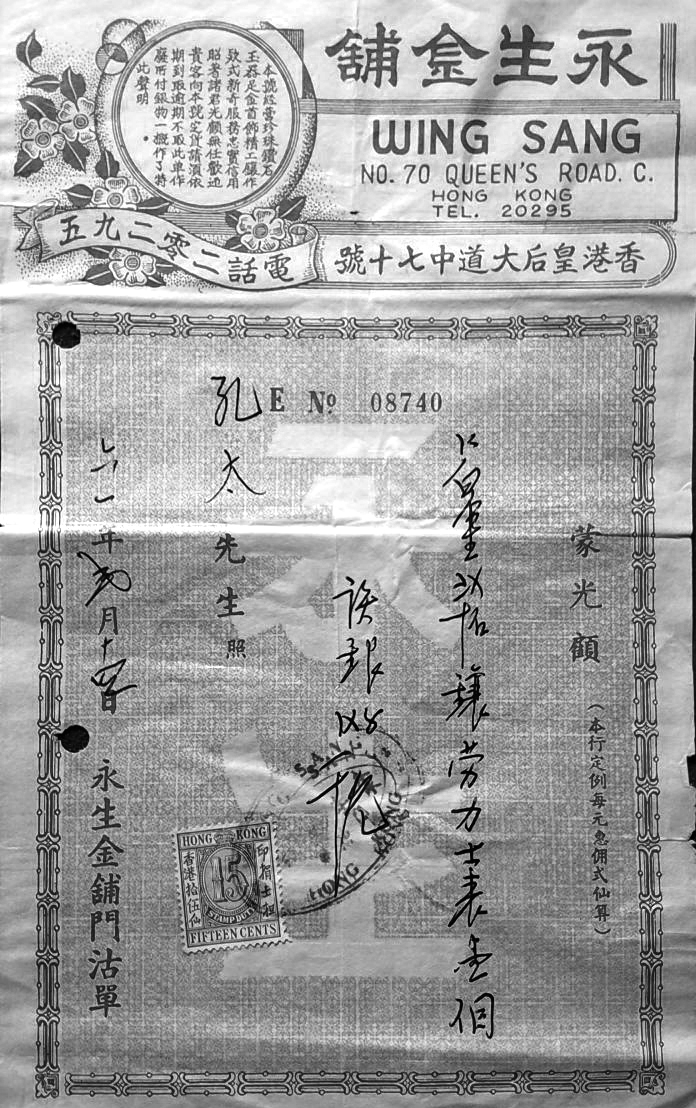 永生金舖
WING SANG
NO. 70 QUEEN'S ROAD. C.
HONG KONG
TEL. 20295
香港皇后大道中七十號
電話二零二九五
本號經營珍珠鑽石
玉器足金首飾精工鑲作
款式新奇服務忠實信用
昭著諸君光顧無任歡迎
貴客向本號定貨請須依
期到取逾期不取此單作
廢所付銀物一概作了特
此聲明。
E No 08740
蒙光顧
(本行定例每元急佣弍仙算)
鑲勞力士表壹個
該銀
孔太先生照
六一年弍月十四日
永生金舖門沽單
HONG KONG
香港拾伍仙
印捐士担
15
STAMP DUTY
FIFTEEN CENTS